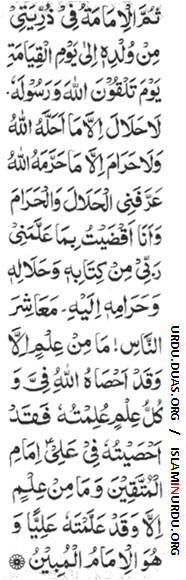 ثُمَّ الْاِمَامَةُ فِيْ ذُرِّيَّتِيْ
مِنْ وُلْدِهٖ اِلٰى يَوْمِ الْقِيَامَةِ
يَوْمَ تَلْقَوْنَ اللّٰهَ وَرَسُوْلَهٗ۔
لَاحَلَالَ اِلَّا مَا اَحَلَّهُ اللّٰهُ
وَلَاحَرَامَ اِلَّا مَاحَرَّمَهُ اللّٰهُ
عَرَّفَنِي الْحَلَالَ وَالْحَرَامَ
وَاَنَا اَفْضَيْتُ بِمَا عَلَّمَنِيْ
رَبِّيْ مِنْ كِتَابِهٖ وَحَلَالِهٖ
وَحَرَامِهٖ اِلَيْهِ۔ مَعَاشِرَ
النَّاسِ! مَا مِنْ عِلْمٍ اِلَّا
وَقَدْ اَحْصَاهُ اللّٰهُ فِيَّ وَ
كُلُّ عِلْمٍ عُلِّمْتُهٗ فَقَدْ
اَحْصَيْتُهٗ فِيْ عَلِيٍّ اِمَامِ
الْمُتَّقِيْنَ وَمَا مِنْ عِلْمٍ
اِلَّا وَقَدْ عَلَّمْتُهٗ عَلِيًّا وَ
هُوَ الْاِمَامُ الْمُبِيْنُ
URDU.DUAS.ORG / ISLAMINURDU.ORG